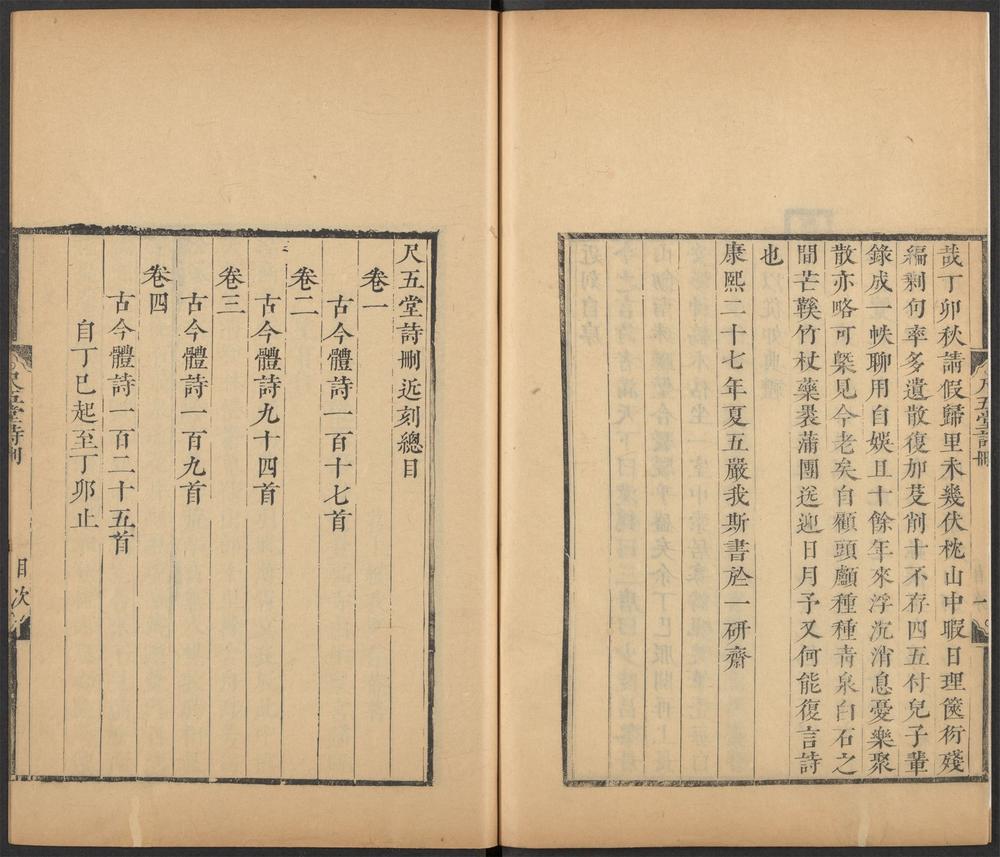 哉丁卯秋請假歸里未幾伏枕山中暇日理篋衍殘
編剩句率多遺散復加芟削十不存四五付兒子輩
錄成一帙聊用自娛且十餘年來浮沉消息憂樂聚
散亦略可槩見今老矣自顧頭顱種種青泉白石之
間芒鞵竹杖藥裹蒲團送迎日月予又何能復言詩
也
康熙二十七年夏五嚴我斯書於一研齋
尺五堂詩刪
尺五堂詩刪近刻總目
卷一
古今體詩一百十七首
卷二
古今體詩九十四首
卷三
古今體詩一百九首
卷四
古今體詩一百二十五首
自丁巳起至丁卯止
尺五堂詩刪
目次